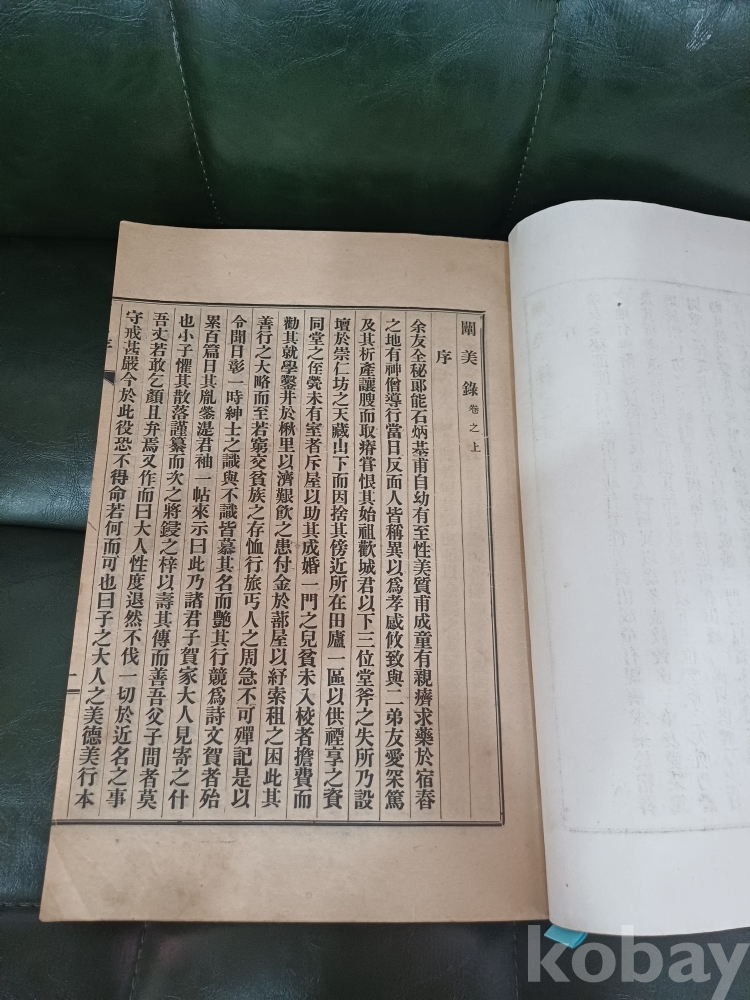 闡美錄 卷之上
序
余友全秘郞能石炳基甫自幼有至性美質甫成童有親癠求藥於宿舂
之地有神僧導行當日反面人皆稱異以爲孝感攸致與二弟友愛罙篤
及其析產讓腴而取瘠甞恨其始祖歡城君以下三位堂斧之失所乃設
壇於崇仁坊之天藏山下而因捨其傍近所在田廬一區以供禋享之資
同堂之侄煢未有室者斥屋以助其成婚一門之兒貧未入校者擔費而
勸其就學鑿井於楸里以濟艱飮之患付金於蔀屋以紓索租之困此其
善行之大略而至若窮交貧族之存恤行旅丐人之周急不可殫記是以
令聞日彰一時紳士之識與不識皆慕其名而艶其行競爲詩文賀者殆
累百篇日其胤鎣湜君袖一帖來示曰此乃諸君子賀家大人見寄之什
也小子懼其散落謹纂而次之將鋟之梓以壽其傳而善吾父子間者莫
吾丈若敢乞顏且弁焉又作而曰大人性度退然不伐一切於近名之事
守戒甚嚴今於此役恐不得命若何而可也曰子之大人之美德美行本
序
一
kobay